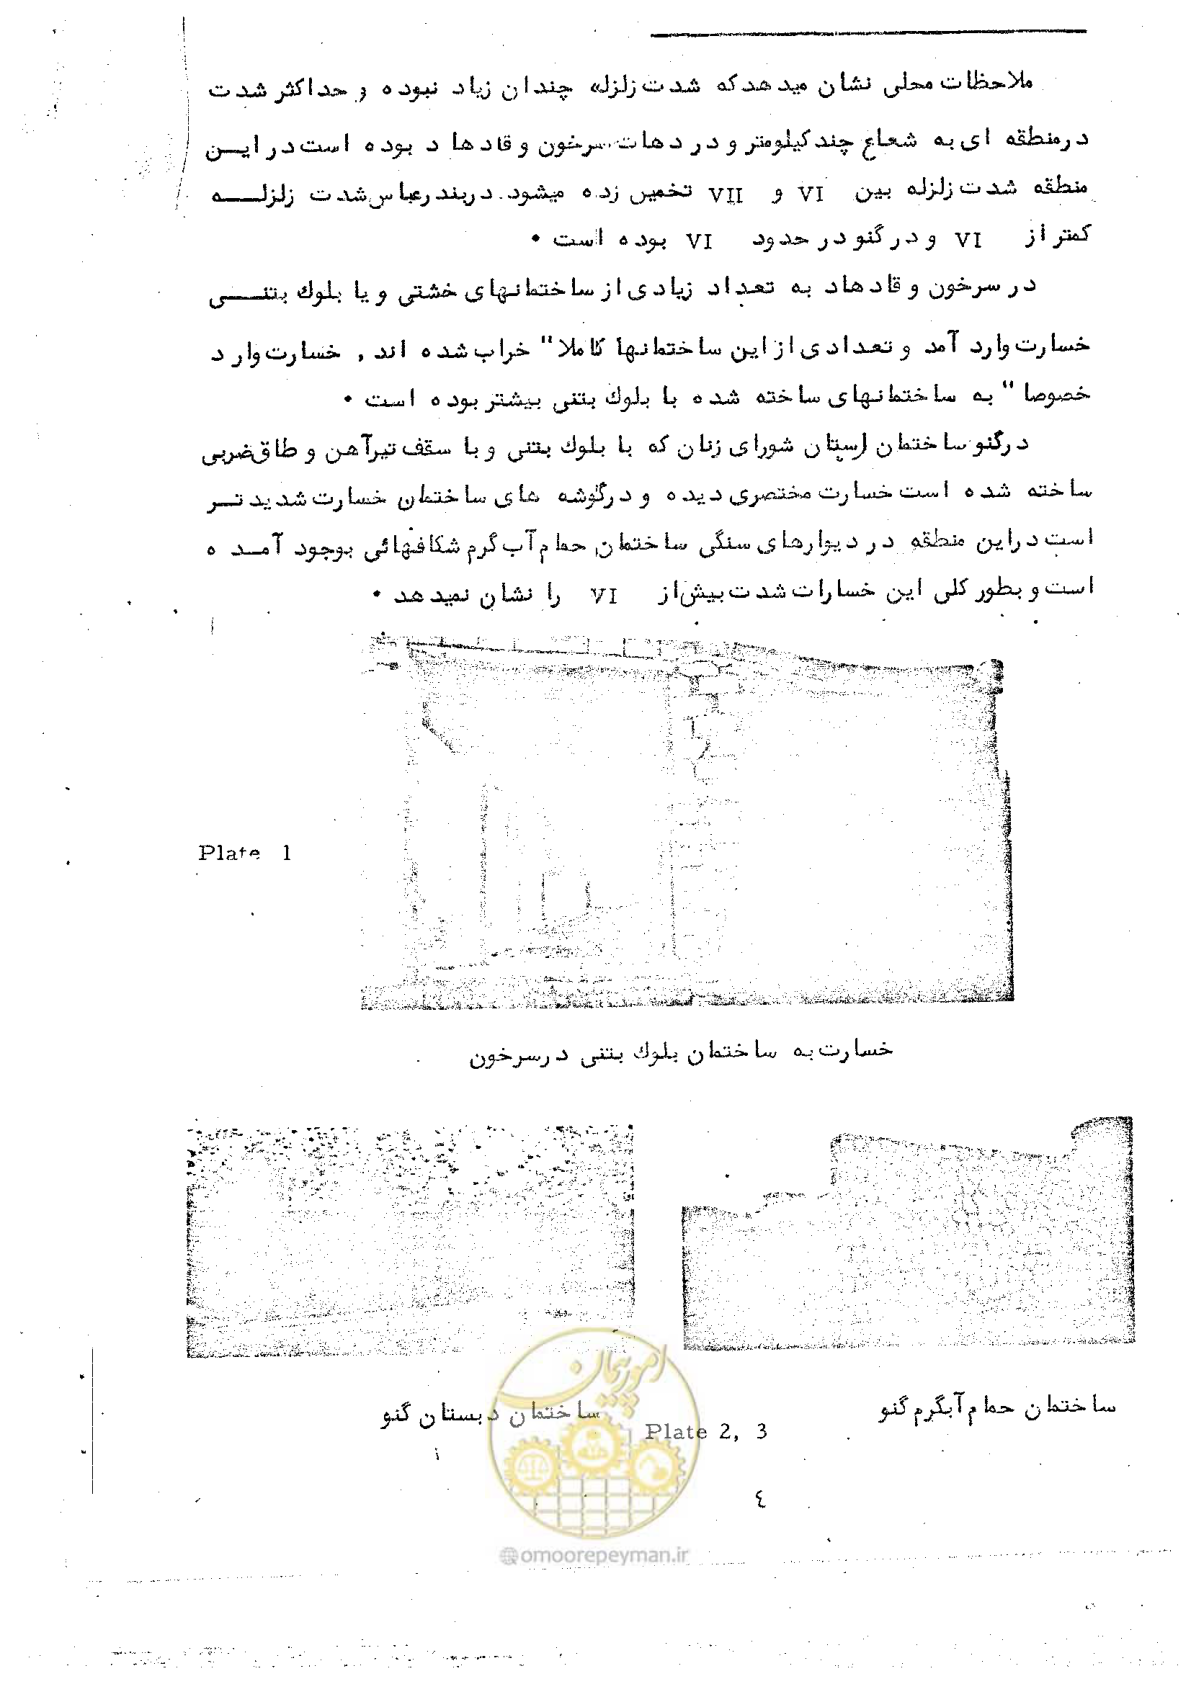 ملاحظات محلی نشان میدهدکه شدت زلزله چندان زیاد نبوده و حداکثر شدت
درمنطقه ای به شعاع چندکیلومتر و در دهات سرخون و قادها د بوده است در این
منطقه شدت زلزله بین VI و VII تخمین زده میشود. دربندرعباس شدت زلزله
کمتر از VI و در گنو در حدود VI بوده است •
در سرخون و قادهاد به تعداد زیادی از ساختمانهای خشتی و یا بلوک بتنی
خسارت وارد آمد و تعدادی از این ساختمانها کاملا" خراب شده اند , خسارت وارد
خصوصا" به ساختمانهای ساخته شده با بلوک بتنی بیشتر بوده است •
درگنو ساختمان شورای زنان که با بلوک بتنی و با سقف تیرآهن و طاق ضربی
ساخته شده است خسارت مختصری دیده و درگوشه های ساختمان خسارت شدید تر
است دراین منطقه در دیوارهای سنگی ساختمان حمام آب گرم شکافهائی بوجود آمده
است و بطور کلی این خسارات شدت بیش از VI را نشان نمیدهد •
Plate 1
خسارت به ساختمان بلوک بتنی درسرخون
ساختمان حمام آبگرم گنو
ساختمان دبستان گنو
Plate 2, 3
٤
امور پیمان
@omoorepeyman.ir